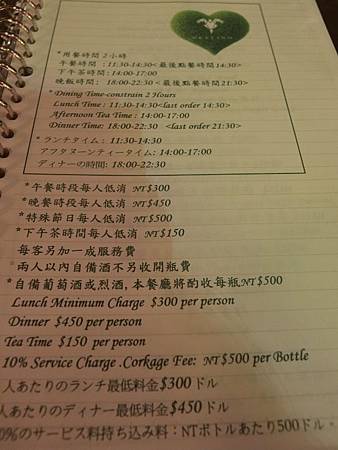 *用餐時間 2小時
午餐時間 :11:30-14:30<最後點餐時間14:30>
下午茶時間: 14:00-17:00
晚飯時間: 18:00-22:30 <最後點餐時間21:30>
*Dining Time-constrain 2 Hours
Lunch Time : 11:30-14:30<last order 14:30>
Afternoon Tea Time : 14:00-17:00
Dinner Time: 18:00-22:30 <last order 21:30>
*ランチタイム : 11:30-14:30
アフタヌーンティータイム: 14:00-17:00
ディナーの時間: 18:00-22:30
*午餐時段每人低消 NT$300
*晚餐時段每人低消 NT$450
*特殊節日每人低消 NT$500
*下午茶時間每人低消 NT$150
每客另加一成服務費
*兩人以內自備酒不另收開瓶費
*自備葡萄酒或烈酒,本餐廳將酌收每瓶NT$500
Lunch Minimum Charge $300 per person
Dinner $450 per person
Tea Time $150 per person
10% Service Charge .Corkage Fee: NT$500 per Bottle
人あたりのランチ最低料金$300ドル
人あたりのディナー最低料金$450ドル
0%のサービス料持ち込み料：NTボトルあたり500ドル・